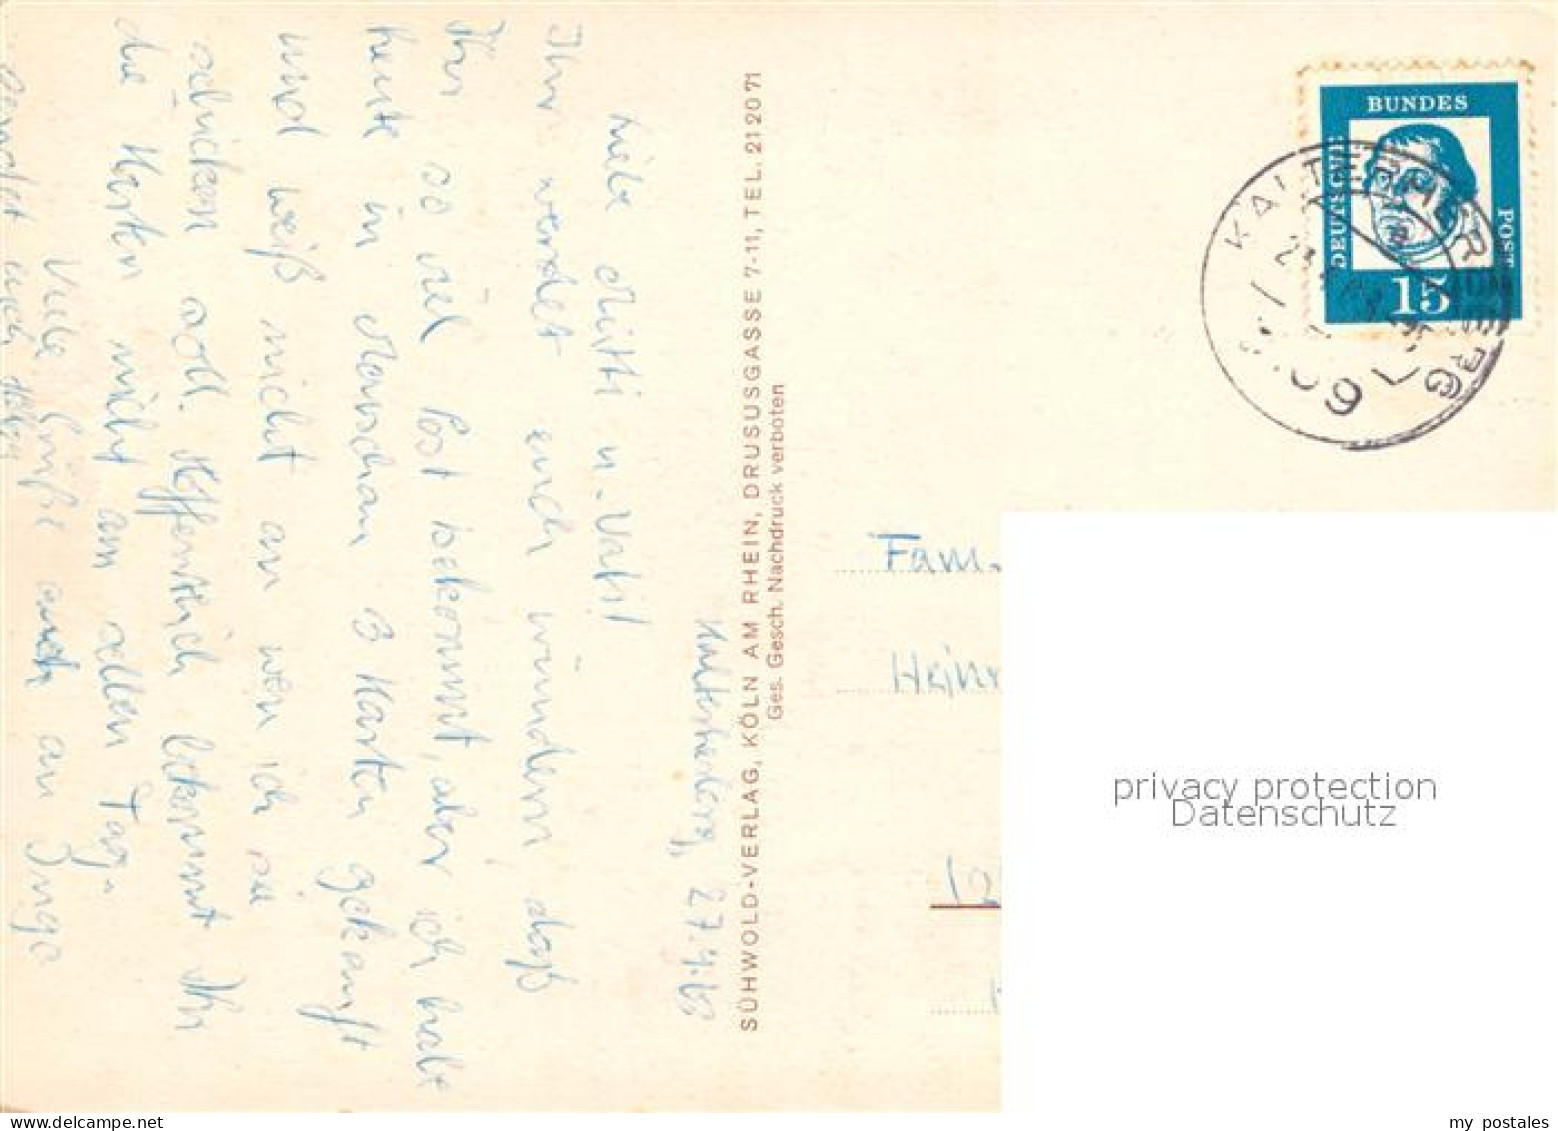 Kalterherberg, 27.4.63
Liebe Mutti u. Vati!
Ihr werdet euch wundern daß
Ihr so viel Post bekommt, aber ich habe
heute in Monschau 3 Karten gekauft
und weiß nicht an wen ich sie
schicken soll. Hoffentlich bekommt Ihr
die Karten nicht am selben Tag.
Viele Grüße auch an Inge
SÜHWOLD-VERLAG, KÖLN AM RHEIN, DRUSUSGASSE 7-11, TEL. 21 20 71
Ges. Gesch. Nachdruck verboten
DEUTSCHE BUNDES POST
15
KALTERHERBERG
Fam.
Hein
privacy protection
Datenschutz
my postales